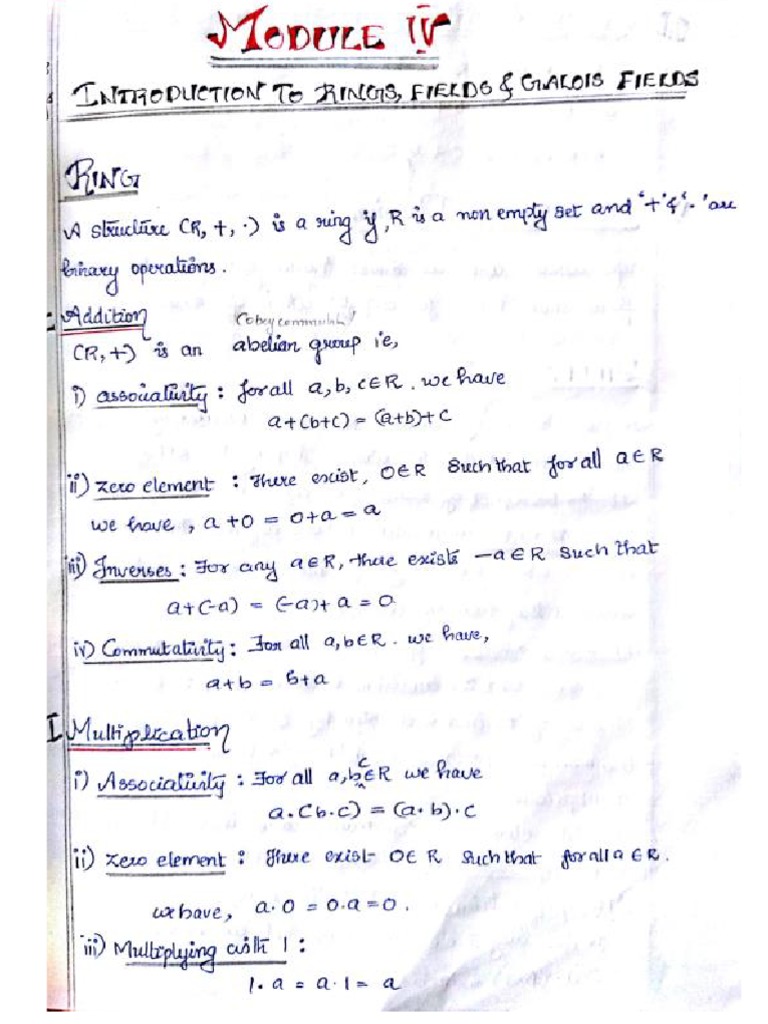 MODULE IV
INTRODUCTION TO RINGS, FIELDS & GALOIS FIELDS
RING
A structure (R, +, ·) is a ring if, R is a non empty set and '+' & '·' are
binary operations.
Addition
(R, +) is an abelian group ie,
i) associativity : for all a, b, c ∈ R. we have
a+(b+c) = (a+b)+c
ii) zero element : There exist, 0 ∈ R such that for all a ∈ R
we have, a+0 = 0+a = a
iii) Inverses : For any a ∈ R, there exists -a ∈ R such that
a+(-a) = (-a)+a = 0
iv) Commutativity : For all a, b ∈ R. we have,
a+b = b+a
I Multiplication
i) Associativity : For all a, b, c ∈ R we have
a·(b·c) = (a·b)·c
ii) zero element : There exist 0 ∈ R such that for all a ∈ R.
we have, a·0 = 0·a = 0.
iii) Multiplying with 1 :
1·a = a·1 = a